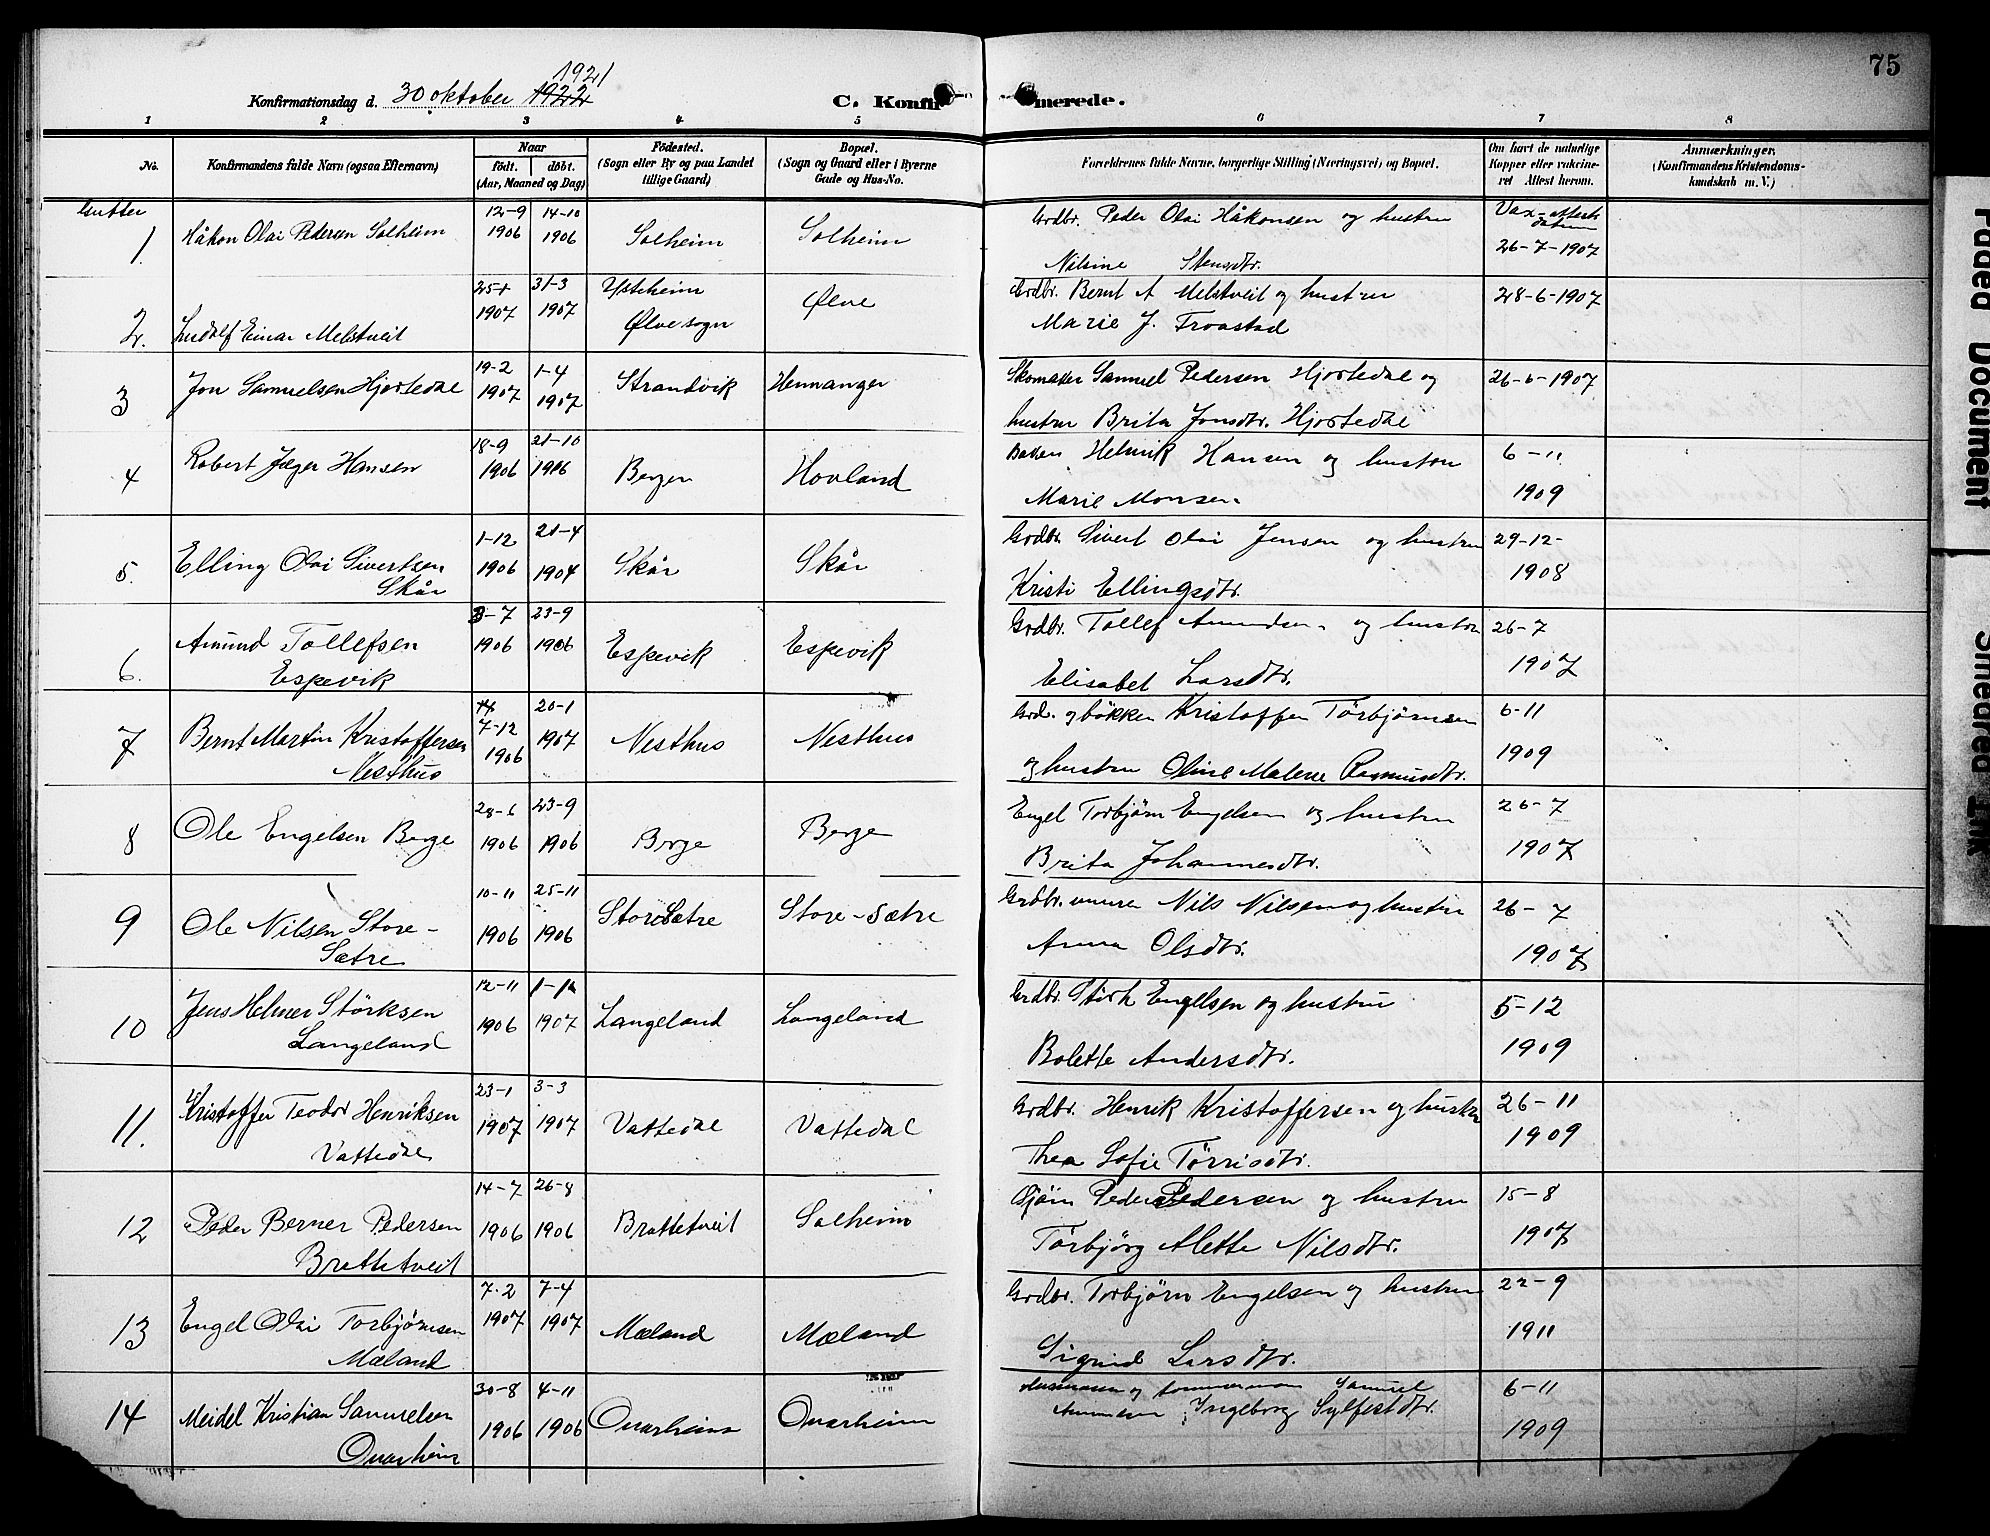 75
1921
Konfirmationsdag d. 30 oktober 1922
C. Konfir merede.
1 2 3 4 5 6 7 8
No. Konfirmandens fulde Navn (ogsaa Efternavn) Naar født. døbt. (Aar, Maaned og Dag) Fødested. (Sogn eller By og paa Landet tillige Gaard) Bopæl. (Sogn og Gaard eller i Byerne Gade og Hus-No. Forældrenes fulde Navne, borgerlige Stilling (Næringsvei) og Bopæl. Om havt de naturlige Kopper eller vakcineret Attest herom. Anmærkninger. (Konfirmandens Kristendomskundskab m. V.)
Gutter
1. Håkon Olai Pedersen Solheim 12-9 1906 14-10 1906 Solheim Solheim Grdbr. Peder Olai Håkonsen og hustru
Nilsine Stensdtr. Vax-attests datum 26-7-1907
2. Ludolf Einar Melstveit 25-1 1907 31-3 1907 Ysteheim Ølve sogn Ølve Grdbr. Bernt A Melstveit og hustru
Marie J. Troastad 28-6-1907
3 Jon Samuelsen Hjortedal 19-2 1907 1-4 1907 Strandvik Hennanger Skomaker Samuel Pedersen Hjortedal og
hustru Brita Jonsdtr. Hjortedal 26-6-1907
4 Robert Jæger Hansen 18-9 1906 21-10 1906 Bergen Hovland Henrik Hansen og hustru
Marie Monsen 6-11 1909
5. Elling Olai Sivertsen
Skår 1-12 1906 21-4 1904 Skår Skår Grdbr. Sivert Olai Jensen og hustru
Kristi Ellingsdtr. 29-12- 1908
6. Amund Tollefsen
Espevik 3-7 1906 23-9 1906 Espevik Espevik Grdbr. Tollef Amundsen og hustru
Elisabet Larsdtr. 26-7 1907
7 Bernt Martin Kristoffersen
Nesthus 7-12 1906 20-1 1907 Nesthus Nesthus Grd. og bøkker Kristoffer Torbjørnsen
og hustru Oline Malene Rasmusdtr. 6-11 1909
8 Ole Engelsen Berge 28-6 1906 23-9 1906 Berge Berge Engel Torbjørn Engelsen og hustru
Brita Johannesdtr. 26-7 1907
9 Ole Nilsen Store-
Sætre 10-11 1906 25-11 1906 Store Sætre Store-Sætre Grdbr. Nils Nilsen og hustru
Anna Olsdtr. 26-7 1907
10 Jens Helmer Størksen
Langeland 12-11 1906 1-1 1907 Langeland Langeland Grdbr. Størk Engelsen og hustru
Bolette Andersdtr. 5-12 1909
11. Kristoffer Teodor Henriksen
Vattedal 23-1 1907 3-3 1907 Vattedal Vattedal Grdbr. Henrik Kristoffersen og hustru
Thea Sofie Tørrisdtr. 26-11 1909
12 Peder Berner Pedersen
Brattetveit 14-7 1906 26-8 1906 Brattetveit Solheim Peder Pedersen og hustru
Torbjørg Alette Nilsdtr. 15-8 1907
13 Engel Olai Torbjørnsen
Mæland 7-2 1907 7-4 1907 Mæland Mæland Grdbr. Torbjørn Engelsen og hustru
Sigrid Larsdtr. 22-9 1911
14 Meidel Kristian Samuelsen
Qvarheim 30-8 1906 4-11 1906 Qvarheim Qvarheim Husmann og tømmermann Samuel
Ingeborg Sylfestdtr. 6-11 1909
Faded Document
Smeared Ink